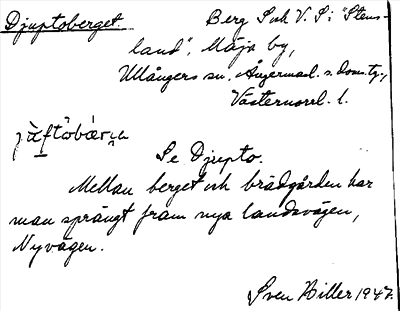 Djuptoberget Berg S och V. S i "Stens-
land", Mäja by,
Ullångers sn, Ångermanl. s. domsg.,
Västernorrl. l.
Se Djupto.
Mellan berget och brädgården har
man sprängt fram nya landsvägen,
Nyvägen.
Sven Hiller 1947.